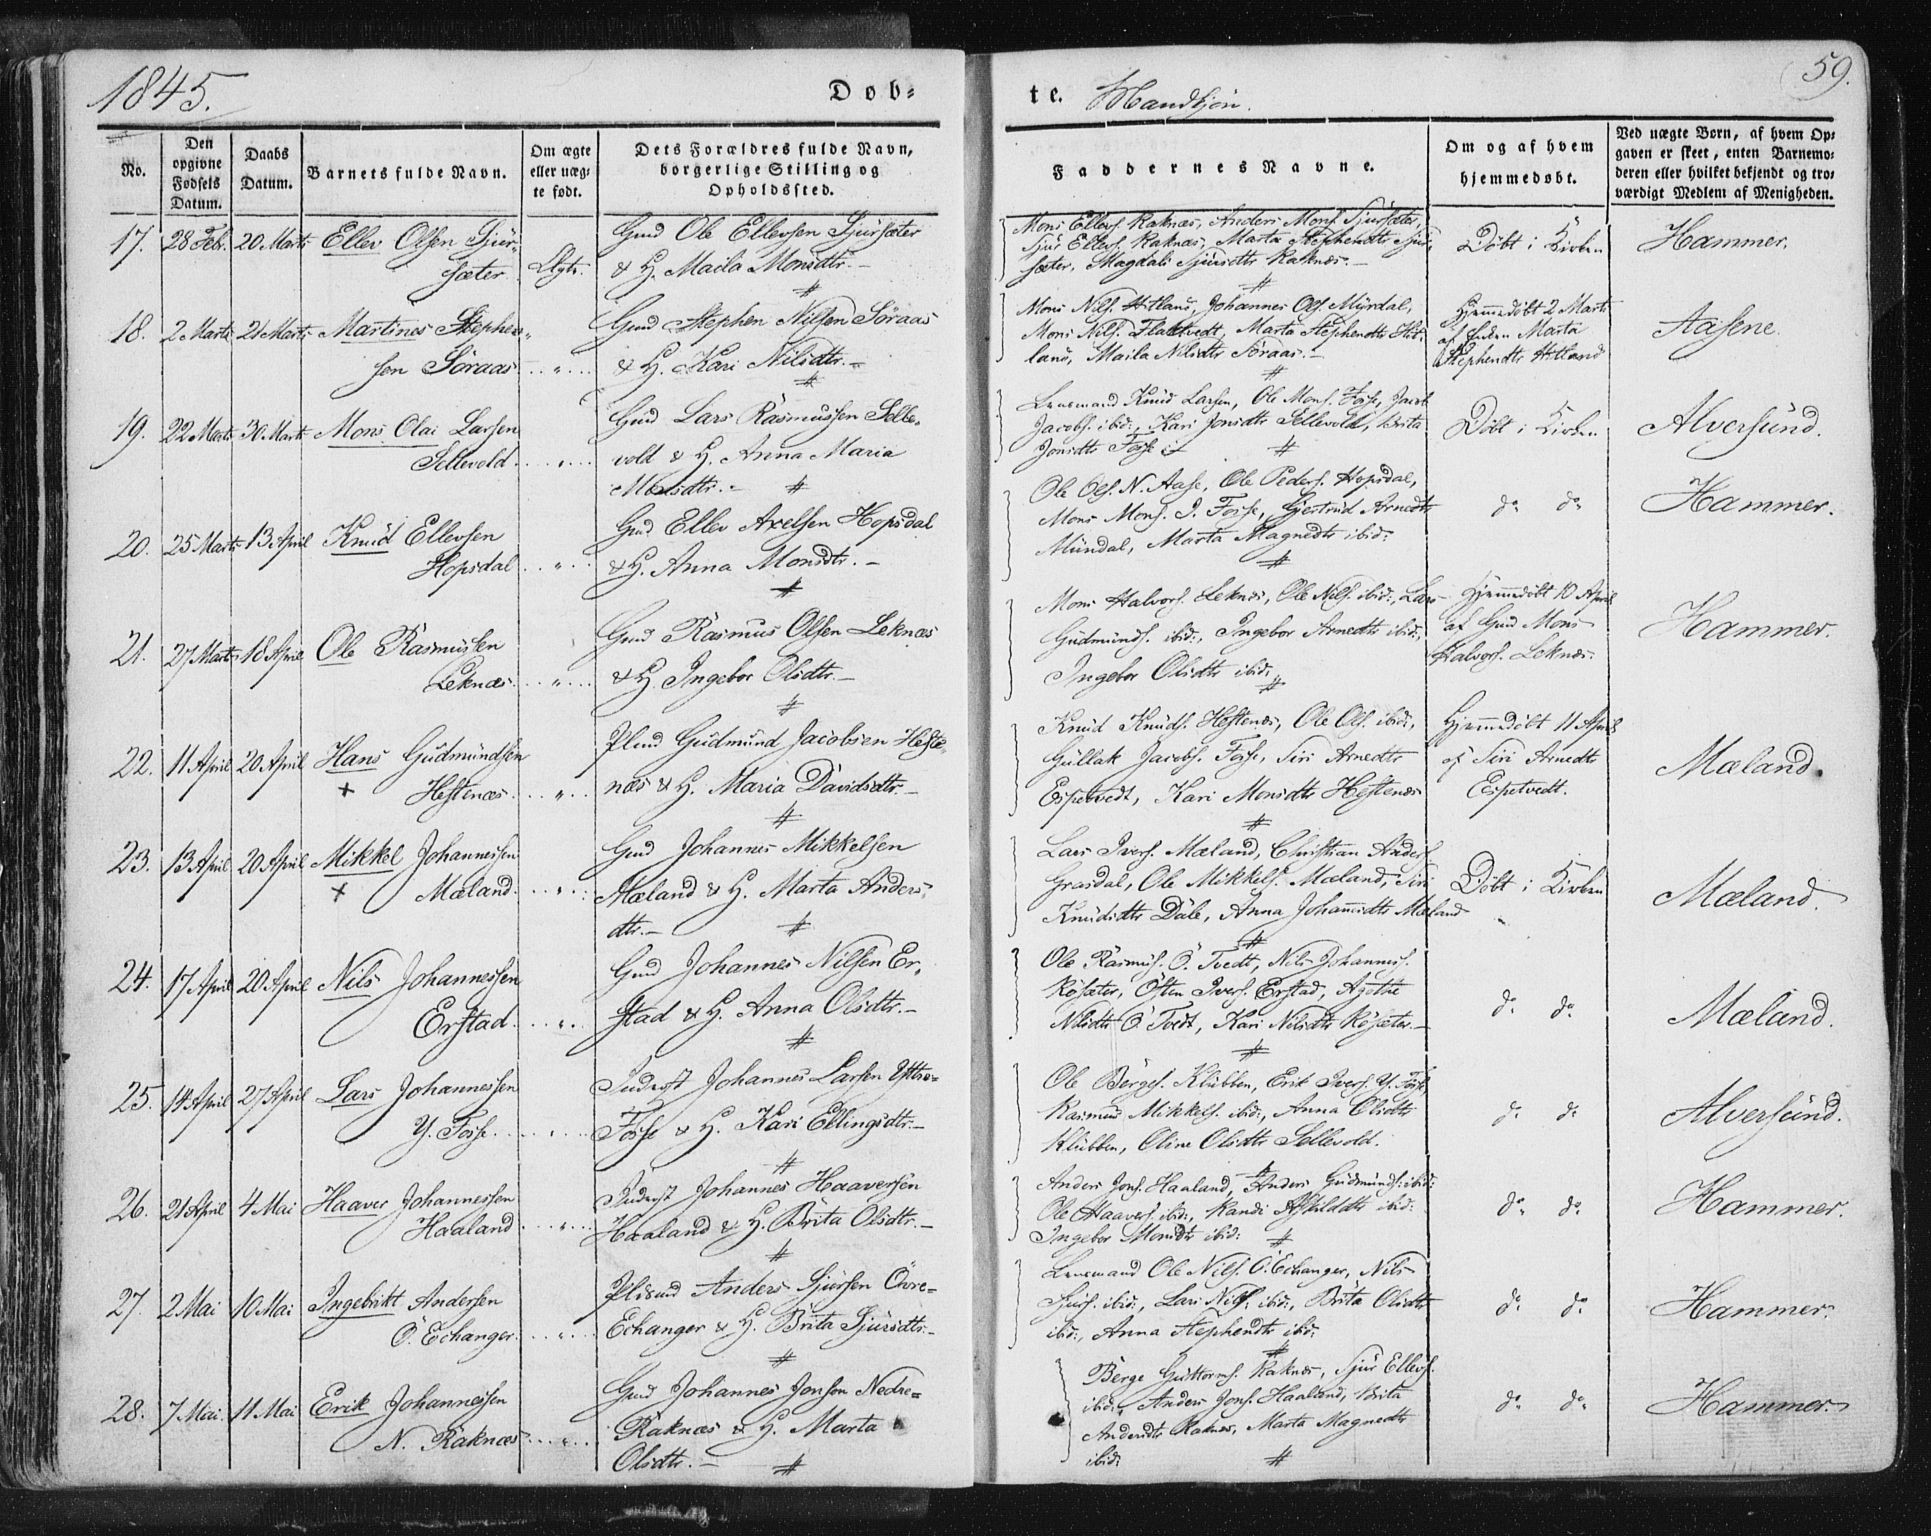 1845.
Døb-
te. Mandkjøn.
59.
No.
Den opgivne Fødsels Datum.
Daabs Datum.
Barnets fulde Navn.
Om ægte eller uægte født.
Dets Forældres fulde Navn, borgerlige Stilling og Opholdssted.
Faddernes Navne.
Om og af hvem hjemmedøbt.
Ved uægte Børn, af hvem Opgaven er skeet, enten Barnemoderen eller hvilket bekjendt og troværdigt Medlem af Menigheden.
17. 28 Feb. 20 Marts Ellev Olsen Sjür-
sæter Ægte.
Gmd Ole Ellevsen Sjürsæter
& H. Maila Monsdtr. —
Mons Ellevs. Raknæs, Anders Mons. Sjürsæter,
Sjür Ellevs. Raknæs, Marta Stephensdtr Sjür-
sæter, Magdali Sjürsdtr Raknæs. —
Døbt i Kirken
Hammer.
18. 2 Marts 21 Marts Martines Stephen-
sen Söraas
Gmd Stephen Nilsen Söraas
& H. Kari Nilsdtr. —
Mons Nils. Hitland, Johannes Ols. Myrdal,
Mons Nils. Flaktvedt, Marta Stephensdtr Hit-
land, Maila Nilsdtr Söraas. —
Hjemmedöbt 2 Marts
af Enken Marta
Stephensdtr Hitland
Aasene.
19. 22 Marts 30 Marts Mons Olai Larsen
Sellevold
Gmd Lars Rasmussen Selle-
vold & H. Anna Maria
Monsdtr. —
Lensmand Knüd Larsen, Ole Mons. Fosse, Jacob
Jacobs. ibid:, Kari Jonsdtr Sellevold, Brita
Jonsdtr Fosse
Döbt i Kirken
Alversund.
20. 25 Marts 13 April Knüd Ellevsen
Hopsdal
Gmd Ellev Axelsen Hopsdal
& H. Anna Monsdtr. —
Ole Ols. N. Aase, Ole Peders. Hopsdal,
Mons Mons. I. Fosse, Gjertrud Arnedtr
Mündal, Marta Magnedtr ibid:
do do
Hammer.
21. 27 Marts 18 April Ole Rasmussen
Leknæs.
Gmd Rasmus Olsen Leknæs
& H. Ingebor Olsdtr. —
Mons Halvors. Leknæs, Ole Nils. ibid:, Lars
Gudmünds. ibid:, Ingebor Arnedtr ibid:,
Ingebor Olsdtr ibid:
Hjemmedöbt 10 April
af Gmd Mons
Halvors. Leknæs.
Hammer.
22. 11 April 20 April Hans Gudmündsen
+ Hestenæs.
Plmd Gudmünd Jacobsen Heste-
næs & H. Maria Davidsdtr. —
Knüd Knüds. Hestenæs, Ole Ols. ibid:,
Güllak Jacobs. Fosse, Siri Arnedtr
Espetvedt, Kari Monsdtr Hestenæs
Hjemmedöbt 11 April
af Siri Arnedtr
Espetvedt.
Mæland.
23. 13 April 20 April Mikkel Johannessen
+ Mæland.
Gmd Johannes Mikkelsen
Mæland & H. Marta Anders-
dtr. —
Lars Ivers. Mæland, Christian Anders.
Grasdal, Ole Mikkels. Mæland, Siri
Knüdsdtr Dale, Anna Johannesdtr Mæland
Döbt i Kirken
Mæland.
24. 17 April 20 April Nils Johannessen
Erstad.
Gmd Johannes Nilsen Er-
stad & H. Anna Olsdtr. —
Ole Rasmus. Ö. Tvedt, Nils Johanness.
Rösæter, Östen Ivers. Erstad, Agothe
Nilsdtr Ö. Tvedt, Kari Nilsdtr Rösæter. —
do do
Mæland.
25. 14 April 27 April Lars Johannessen
Y. Fosse.
Inderst Johannes Larsen Yttre-
Fosse & H. Kari Ellingsdtr. —
Ole Börges. Klübben, Erik Ivers. Y. Fosse,
Rasmus Mikkels. ibid:, Anna Olsdtr
Klübben, Oline Olsdtr Sellevold.
do do
Alversünd.
26. 21 April 4 Mai Haaver Johannessen
Haaland
Inderst Johannes Haaversen
Haaland & H. Brita Olsdtr. —
Anders Jons. Haaland, Anders Gudmünds: ibid:
Ole Haavers. ibid:, Randi Askildsdtr ibid:
Ingebor Monsdtr ibid:
do do
Hammer.
27. 2 Mai 10 Mai Ingebrikt Andersen
Ö. Echanger.
Pladsmd Anders Sjürsen Övre-
Echanger & H. Brita Sjürsdtr. —
Lensmand Ole Nils. Ö. Echanger, Nils
Sjürs. ibid:, Lars Nils. ibid:, Brita Olsdtr
ibid:, Anna Stephensdtr ibid:
do do
Hammer.
28. 7 Mai 11 Mai Erik Johannessen
N. Raknæs
Gmd Johannes Jonsen Nedre-
Raknæs & H. Marta
Olsdtr. —
Börge Guttorms. Raknæs, Sjür Ellevs.
ibid:, Anders Jons. Haaland, Brita
Andersdtr Raknæs, Marta Magnedtr
ibid:
do do
Hammer.